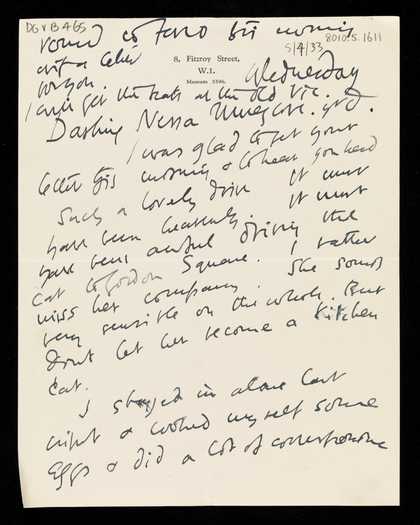 DG VB A65
round to two this morning
8010.5.1611
5/4/33
with a letter
8, Fitzroy Street,
W.1.
Museum 3596.
for you.
Wednesday
I can get the seats at the Old Vic.
Darling Nessa
I was glad to get your
letter this morning & to hear you had
Such a lovely drive It must
have been heavenly. It must
have been awful driving the
Cat to Gordon Square. I rather
miss her company. She sounds
very sensible on the whole. But
don't let her become a kitchen
Cat.
I stayed in alone last
night & cooked myself some
eggs & did a lot of correspondence